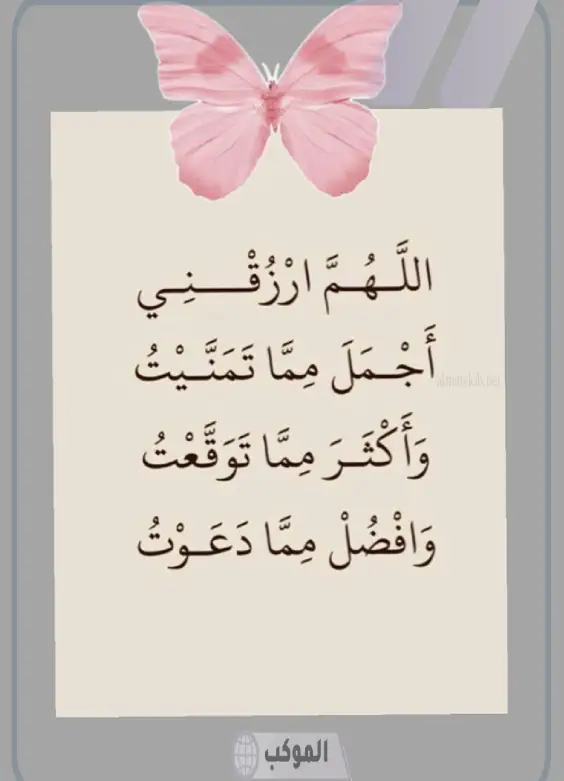 اللَّـهُـمَّ ارْزُقْـــنِـي
أَجْـمَلَ مِمَّا تَمَنَّـيْتُ
وَأَكْثَـرَ مِمَّا تَوَقَّعْتُ
وَافْضُلْ مِمَّا دَعَـوْتُ
الموكب